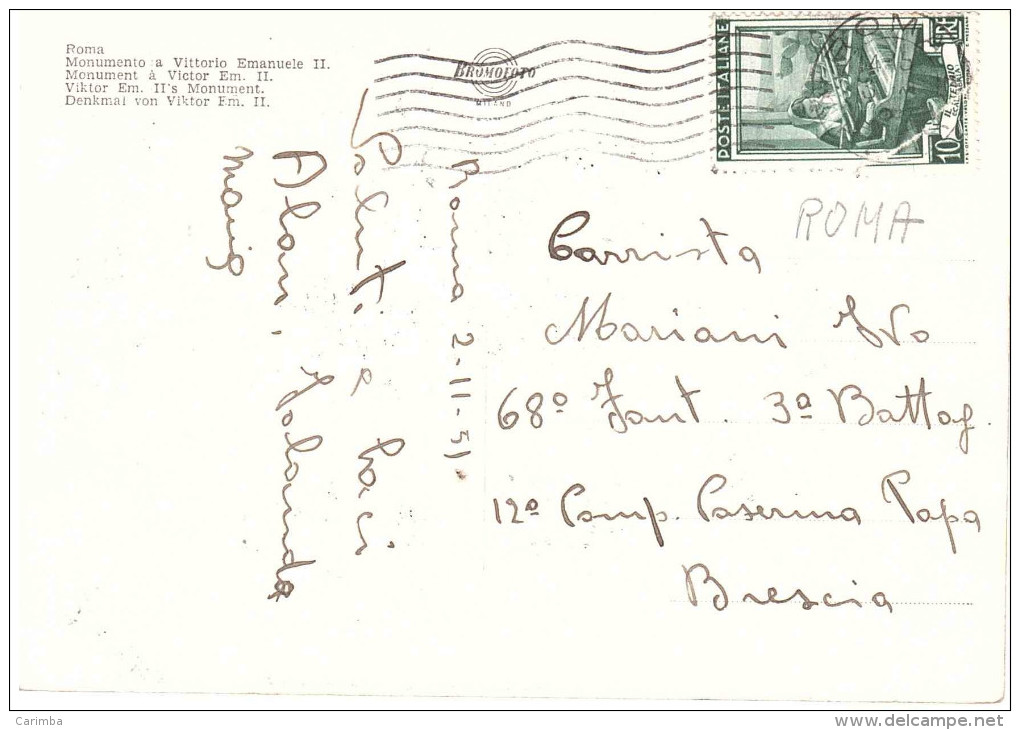 Roma
Monumento a Vittorio Emanuele II.
Monument à Victor Em. II.
Viktor Em. II's Monument.
Denkmal von Viktor Em. II.
BROMOFOTO
MILANO
POSTE ITALIANE
10 LIRE
IL TELAIO
ROMA
Roma 2-11-51
Saluti e baci
Alari, Jolanda
Carrista
Mariani Ivo
68º Fant. 3ª Battag.
12ª Comp. Caserma Papa
Brescia
Carimba
www.delcampe.net